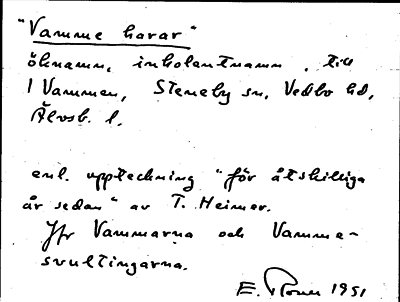 "Vamme harar"
öknamn, inbolantnamn, till
1 Vammen, Steneby sn, Vedbo hd,
Älvsb. l.
enl. uppteckning "för åtskilliga
år sedan" av T. Heimer.
Jfr Vammarna och Vamme-
svultingarna.
E. 1951